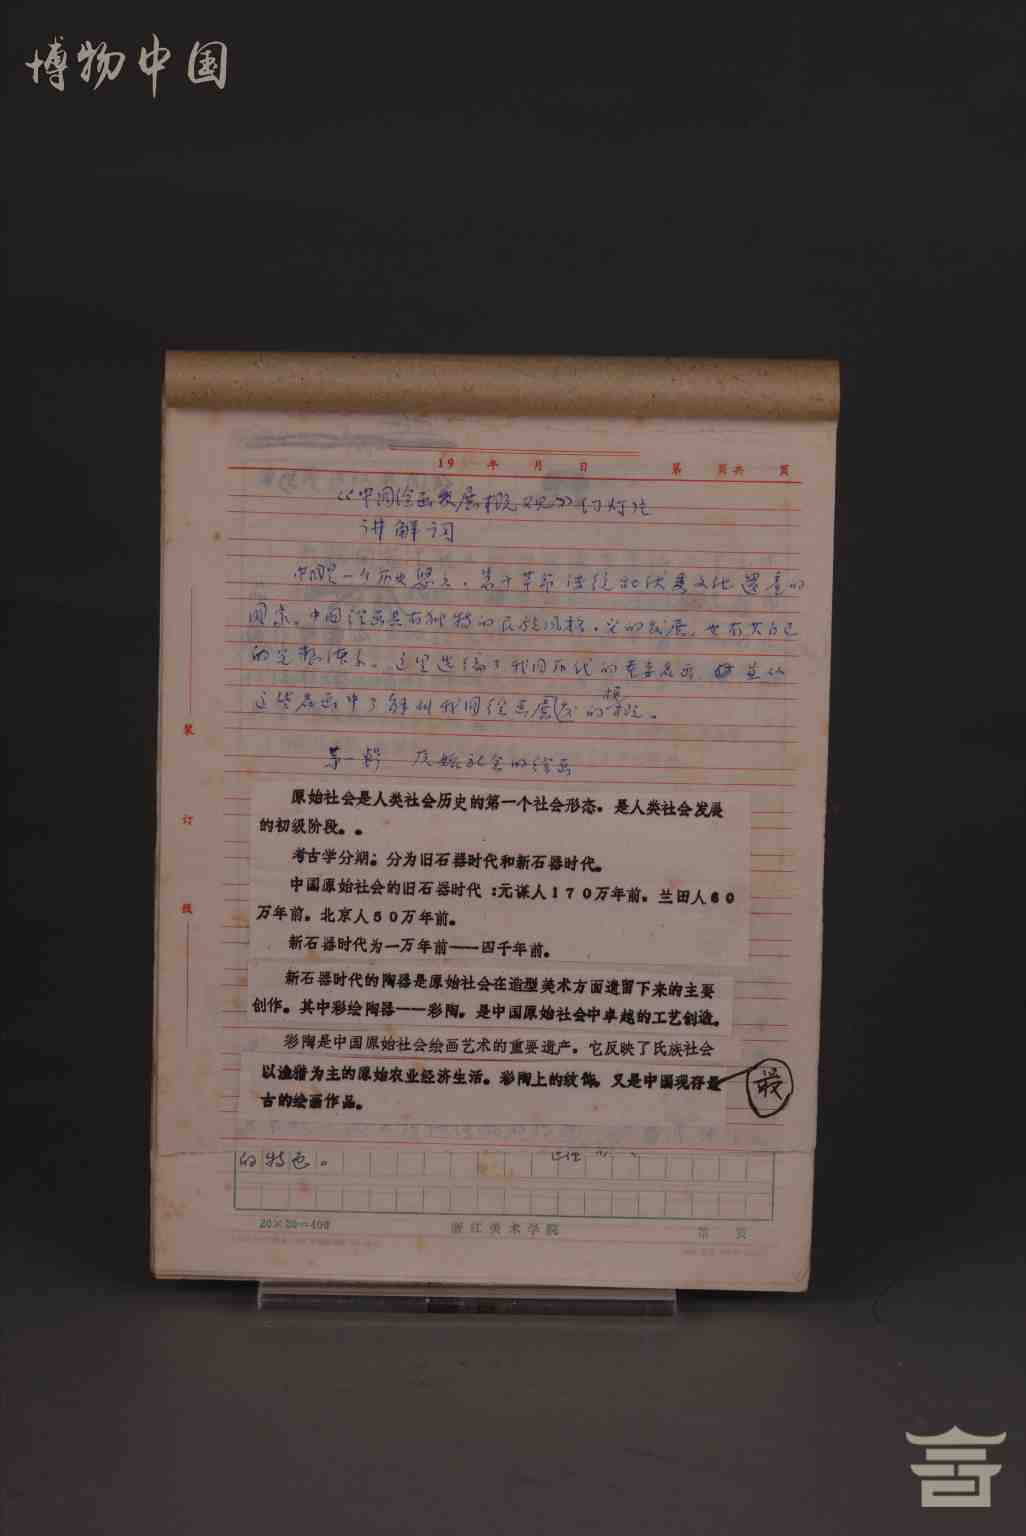 博物中国
19 年 月 日 第 页共 页
《中国绘画发展概况》幻灯片
讲解词
中国是一个历史悠久，富于革命传统和优秀文化遗产的
国家。中国绘画具有独特的民族风格，它的发展，也有其自己
的完整体系。这里选编了我国历代的重要名画，
这些名画中了解到我国绘画发展的概况。
第一辑 原始社会的绘画
原始社会是人类社会历史的第一个社会形态。是人类社会发展
的初级阶段。。
考古学分期：分为旧石器时代和新石器时代。
中国原始社会的旧石器时代：元谋人170万年前。兰田人60
万年前。北京人50万年前。
新石器时代为一万年前——四千年前。
新石器时代的陶器是原始社会在造型美术方面遗留下来的主要
创作。其中彩绘陶器——彩陶。是中国原始社会中卓越的工艺创造。
彩陶是中国原始社会绘画艺术的重要遗产。它反映了氏族社会
以渔猎为主的原始农业经济生活。彩陶上的纹饰。又是中国现存最
最
古的绘画作品。
的特色。
20×20=400 浙江美术学院 第 页
装
订
线